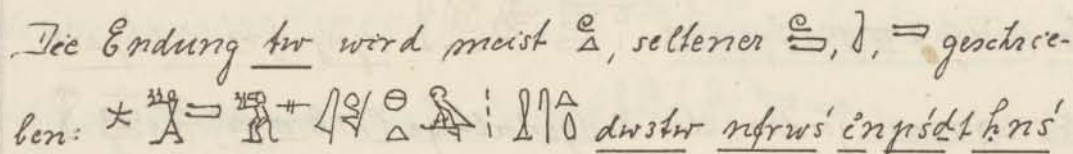 Die Endung tw wird meist , seltener , , geschrie-
ben: dwstw nfrwś inpśdt ḥnś